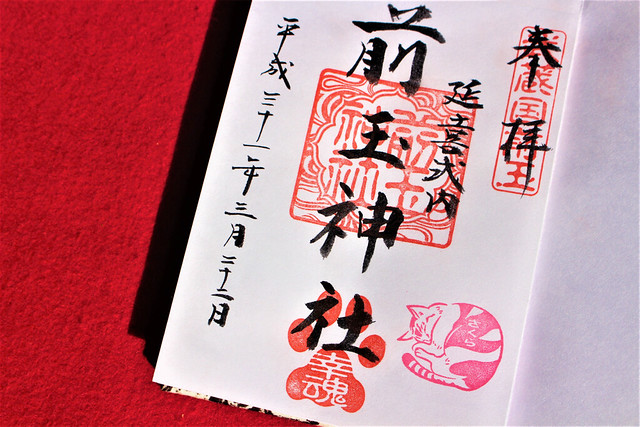 奉拝
延喜式内
前玉神社
幸魂
さくら
平成三十一年三月二十二日